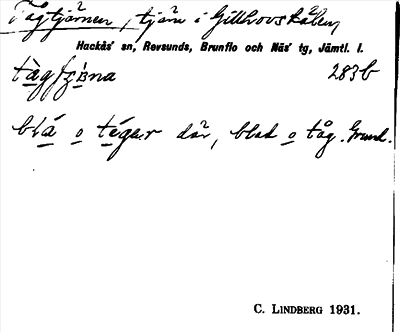 Tågtjärnen, tjärn i Gillhovskålen,
Hackås' sn, Revsunds, Brunflo och Näs' tg, Jämtl. l.
283b
blå o téger där, blad o tåg. Grund.
C. LINDBERG 1931.